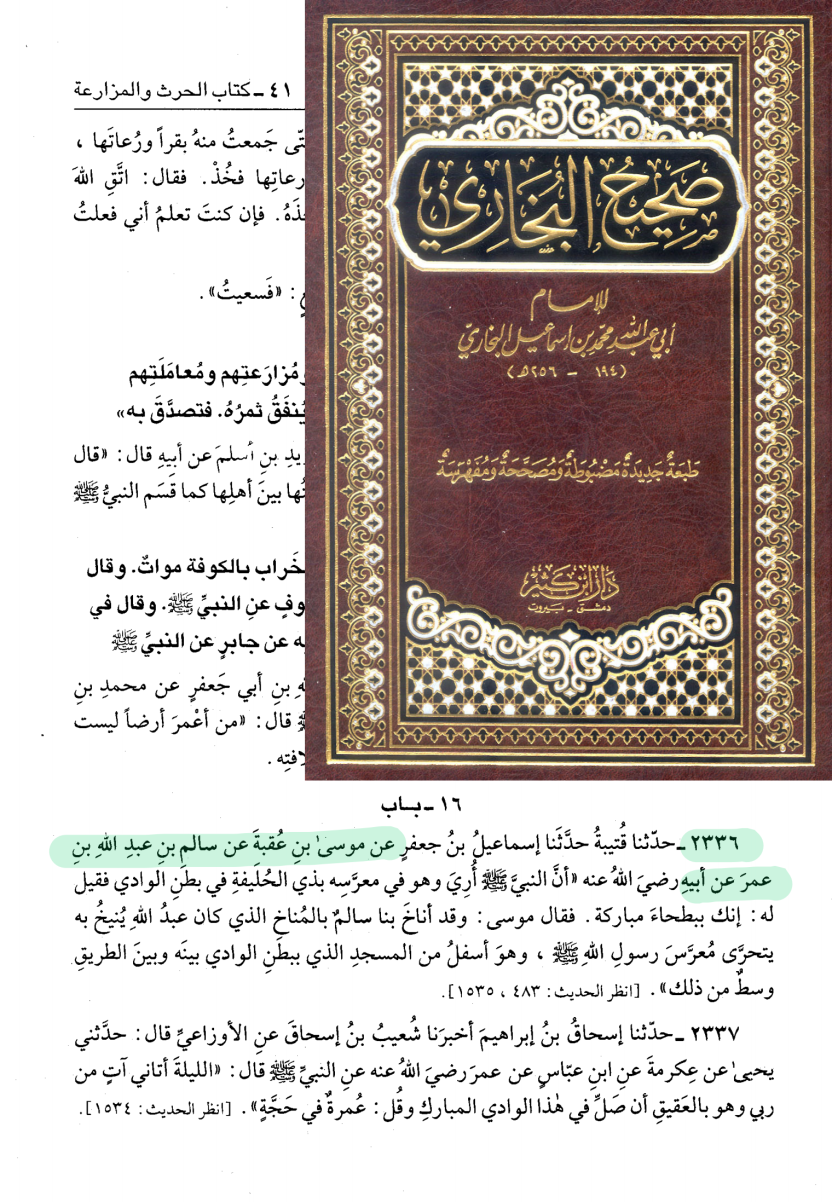 ٤١ ـ كتاب الحرث والمزارعة
تّى جَمعتُ منهُ بقراً ورُعاتَها ،
رعاتِها فخُذْ. فقال: اتَّقِ اللهَ
خذَهُ. فإن كنتَ تعلمُ أني فعلتُ
: «فَسعيتُ».
مُزارَعتِهم ومُعامَلَتِهم
يُنفَقُ ثمرُهُ. فتصدَّقَ به»
يدِ بنِ أسلمَ عن أبيهِ قال: «قال
تُها بينَ أهلِها كما قَسَم النبيُّ ﷺ
خَراب بالكوفة مواتٌ. وقال
وفٍ عنِ النبيِّ ﷺ. وقال في
ه عن جابرٍ عن النبيِّ ﷺ
هِ بنِ أبي جَعفرٍ عن محمدِ بنِ
ﷺ قال: «من أعْمرَ أرضاً ليست
لافتِه.
صَحِيحُ البُخَارِي
للإمام
أبي عبد الله محمّد بن إسماعيل البخاريّ
(١٩٤ - ٢٥٦ه)
طَبعَةٌ جَدِيدَةٌ مَضبُوطَةٌ وَمُصَحَّحَةٌ وَمُفَهْرَسَةٌ
دار ابن كثير
دمشق - بيروت
١٦ ـ بـاب
٢٣٣٦ ـ حدّثنا قُتيبةُ حدَّثَنا إسماعيلُ بنُ جعفرٍ عن موسىٰ بنِ عُقبةَ عن سالمِ بنِ عبدِ اللهِ بنِ
عمرَ عن أبيهِ رضيَ اللهُ عنه «أنَّ النبيَّ ﷺ أُرِيَ وهو في معرَّسِه بذي الحُلَيفةِ في بطنِ الوادي فقيل
له: إنك ببطحاءَ مباركة. فقال موسى: وقد أناخَ بنا سالمٌ بالمُناخِ الذي كان عبدُ اللهِ يُنيخُ به
يتحرَّى مُعرَّسَ رسولِ اللهِ ﷺ ، وهوَ أسفلُ من المسجدِ الذي ببطنِ الوادي بينَه وبينَ الطريقِ
وسطٌ من ذلك». [انظر الحديث: ٤٨٣ ، ١٥٣٥].
٢٣٣٧ ـ حدّثنا إسحاقُ بنُ إبراهيمَ أخبرَنا شُعيبُ بنُ إسحاقَ عنِ الأوزاعيِّ قال: حدَّثني
يحيىٰ عن عِكرمةَ عنِ ابنِ عبّاسٍ عن عمرَ رضيَ اللهُ عنه عنِ النبيِّ ﷺ قال: «الليلةَ أتاني آتٍ من
ربي وهو بالعَقيقِ أن صَلِّ في هٰذا الوادي المباركِ وقُل: عُمرةٌ في حَجَّةٍ». [انظر الحديث: ١٥٣٤].